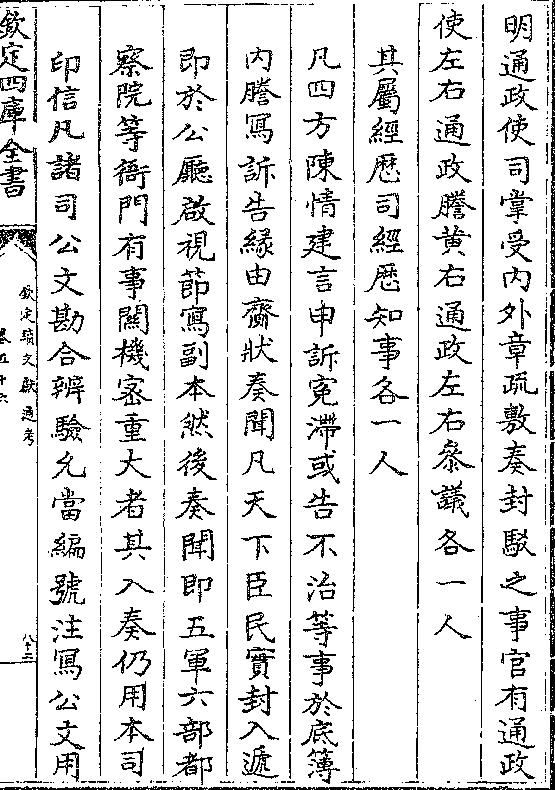 明通政使司掌受内外章疏敷奏封駁之事官有通政
使左右通政謄黄右通政左右叅議各一人
其屬經歴司經歴知事各一人
凡四方陳情建言申訴寃滯或告不治等事於底簿
内謄寫訴告緣由齎狀奏聞凡天下臣民實封入遞
即於公廳啟視節寫副本然後奏聞即五軍六部都
察院等衙門有事關機密重大者其入奏仍用本司
印信凡諸司公文勘合辨驗允當編號注寫公文用
欽定四庫全書
欽定續文獻通考
卷五十六
八十三